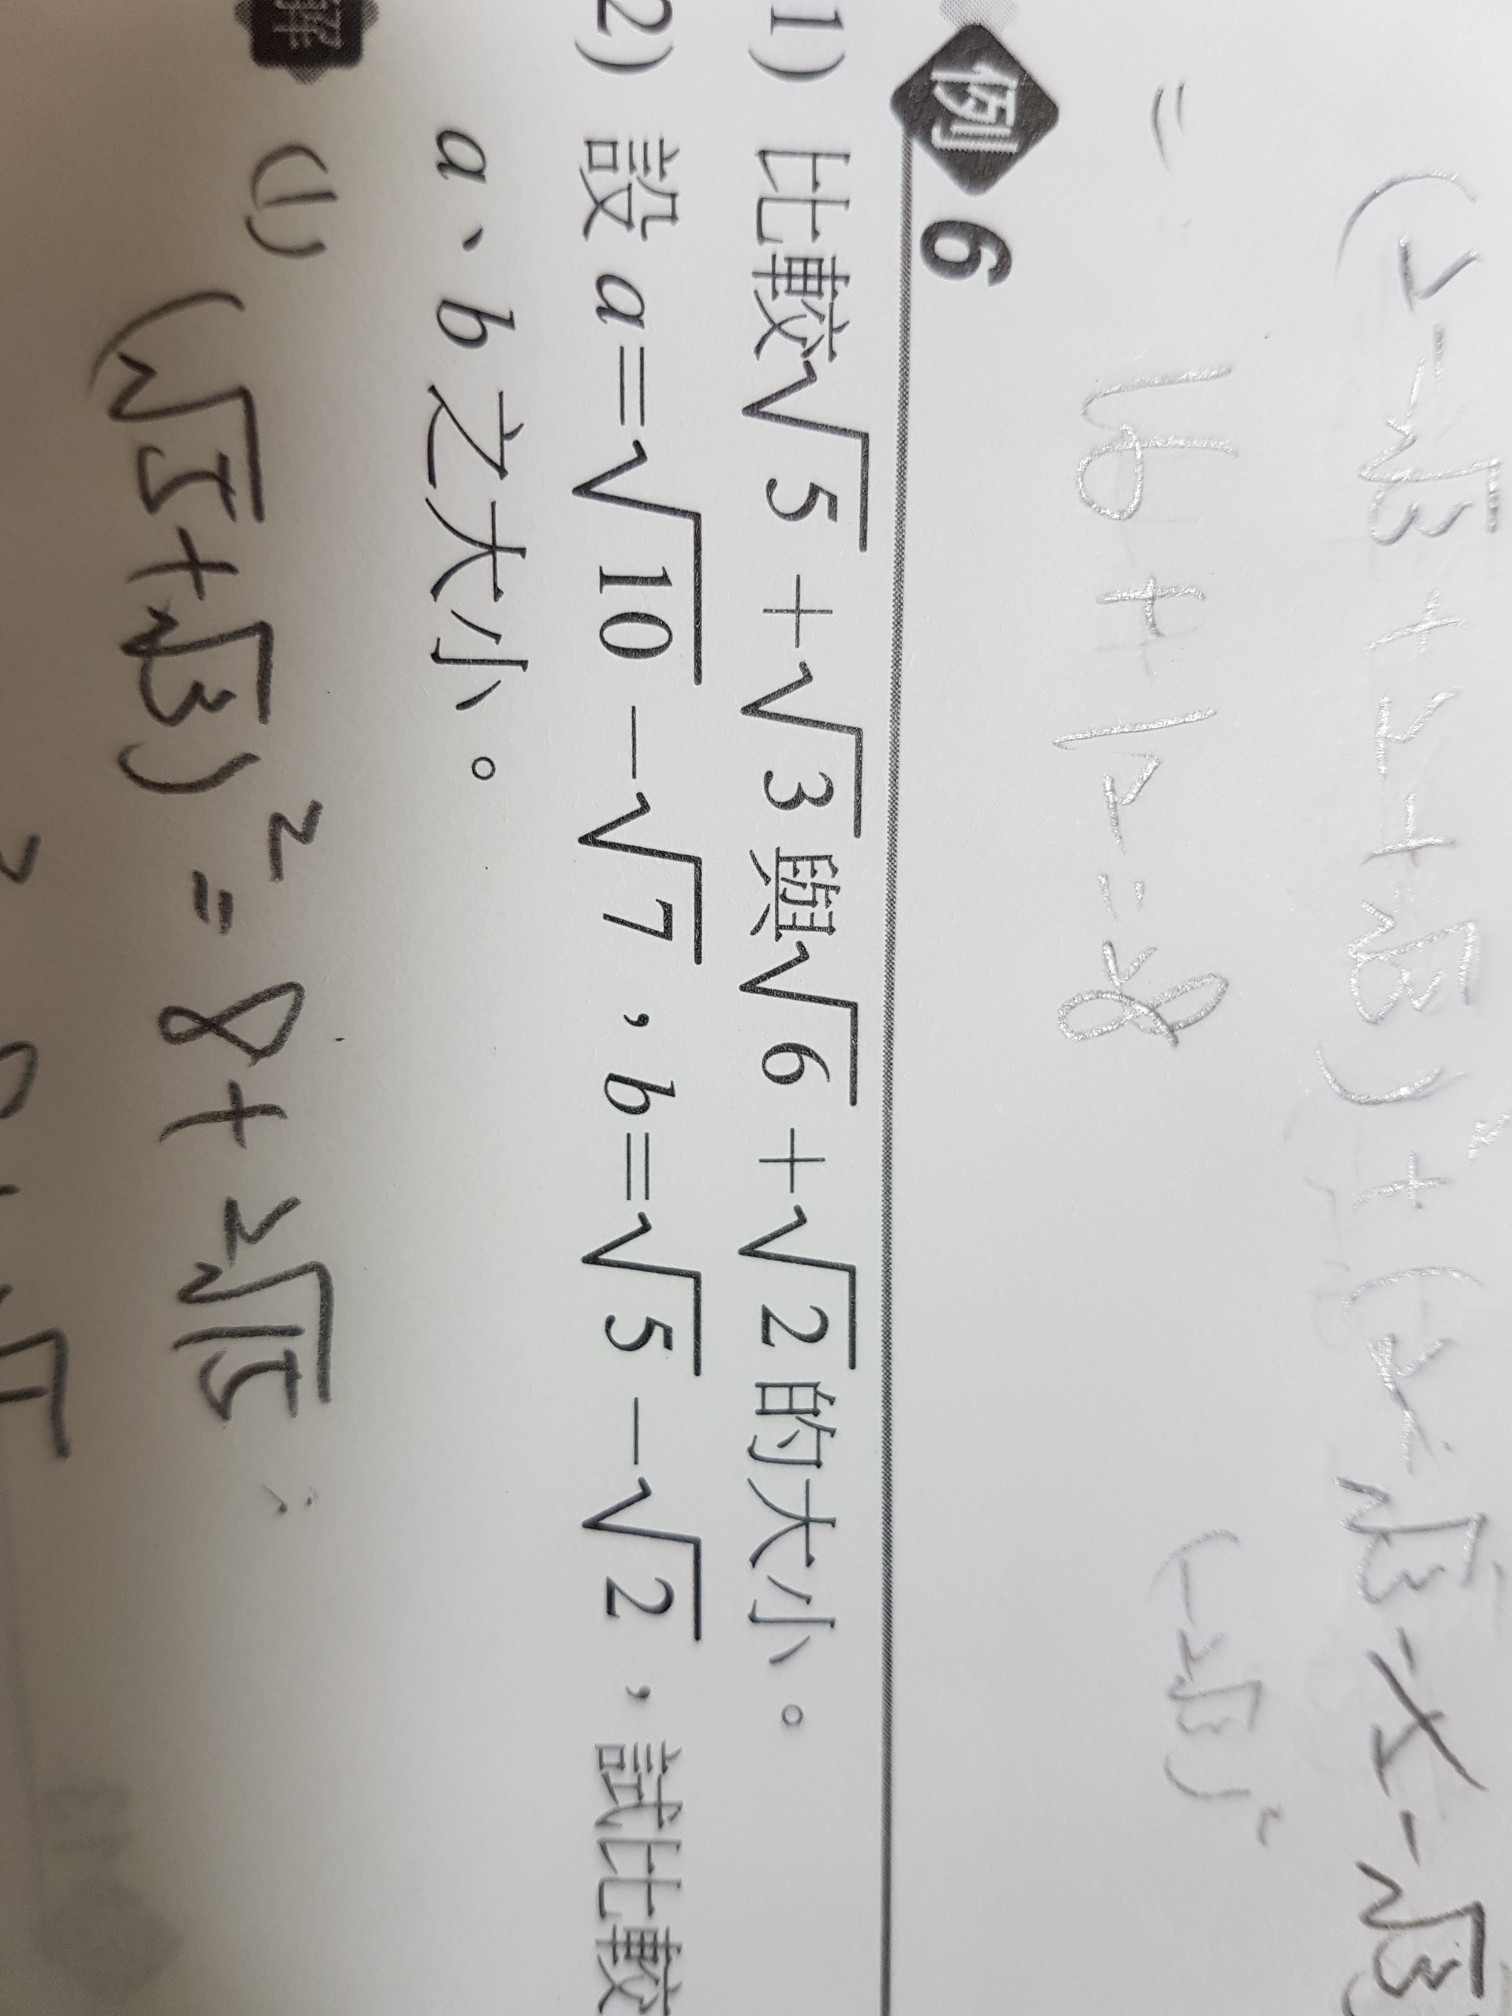 (2-√3+2+√3)²+(2-√3-2-√3
(-2√3)²
= 16+12=28
例 6
1) 比較√5+√3與√6+√2的大小。
2) 設a=√10-√7，b=√5-√2，試比較
a、b之大小。
解 (1) (√5+√3)²=8+2√15